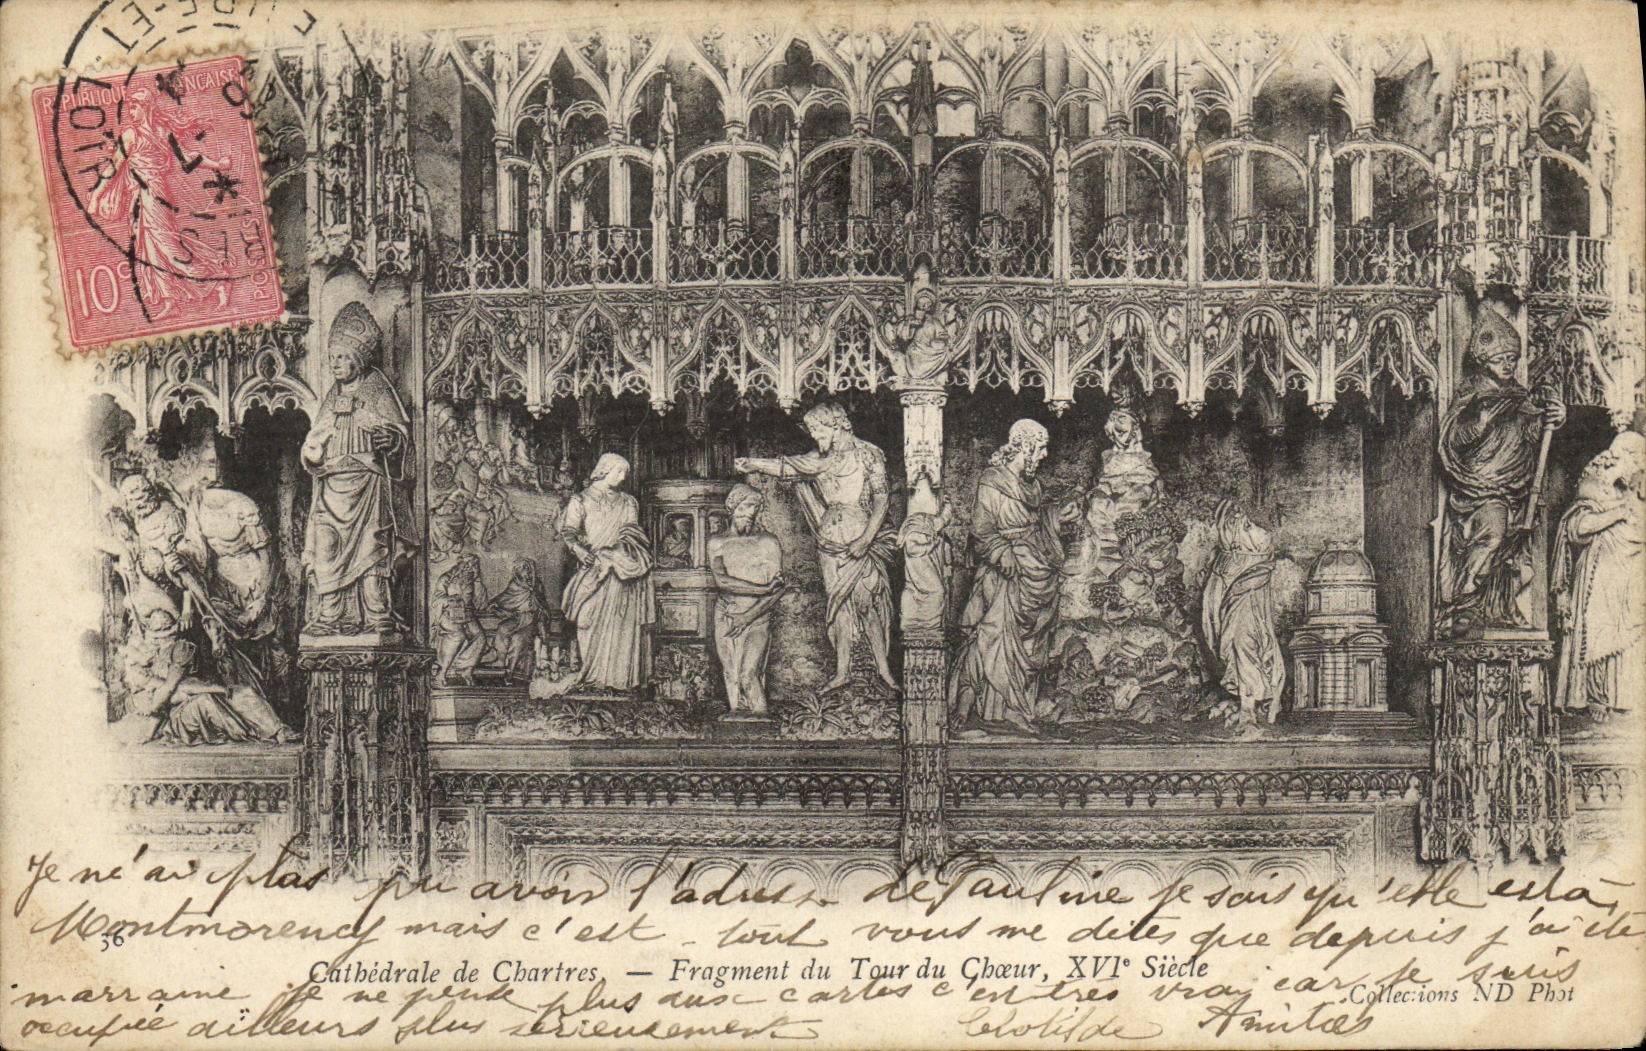 RÉPUBLIQUE FRANÇAISE
POSTES
10c
EURE-ET-LOIR
Je né ai plas pu avoir l'adresse de Pauline je sais qu'elle est à
Montmorency mais c'est tout vous me dites que depuis j'ai été
36
Cathédrale de Chartres, — Fragment du Tour du Chœur, XVIe Siècle
marraine je ne pense plus aux cartes c'en très vrai car je suis
Collections ND Phot
occupée ailleurs plus serieusement Clotilde Amitiés